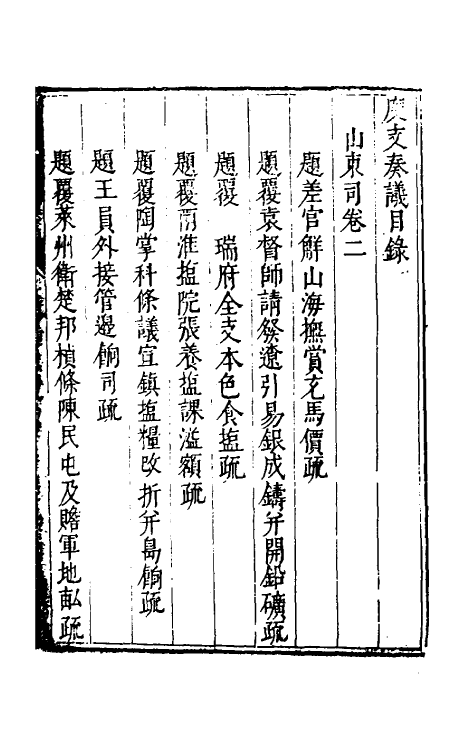 度支奏議目錄
山東司卷二
題差官解山海撫賞充馬價疏
題覆袁督師請發遼引易銀成鑄并開鉛礦疏
題覆 瑞府全支本色食塩疏
題覆兩淮塩院張養塩課溢額疏
題覆陶掌科條議宣鎮塩糧改折并島餉疏
題王員外接管邊餉司疏
題覆萊州衛楚邦楨條陳民屯及贍軍地畝疏